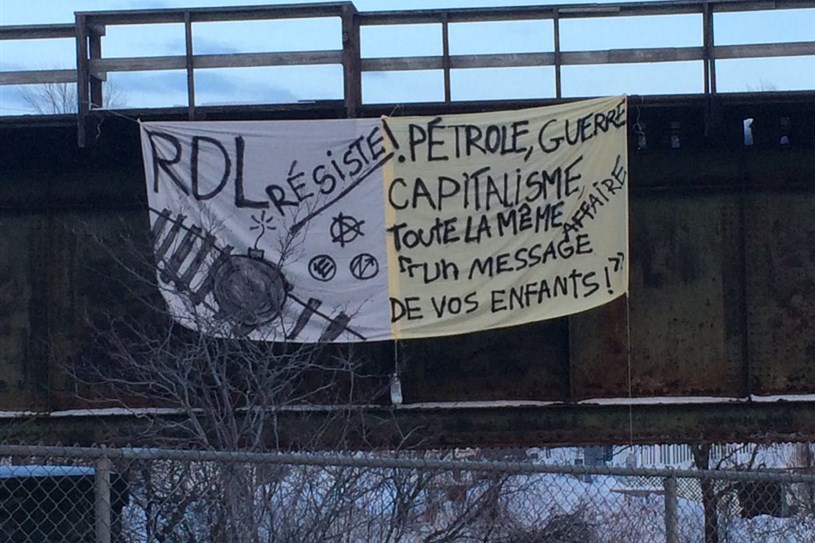 RDL
RÉSISTE!
PÉTROLE, GUERRE
CAPITALISME,
TOUTE LA MÊME AFFAIRE
"UN MESSAGE
DE VOS ENFANTS!"